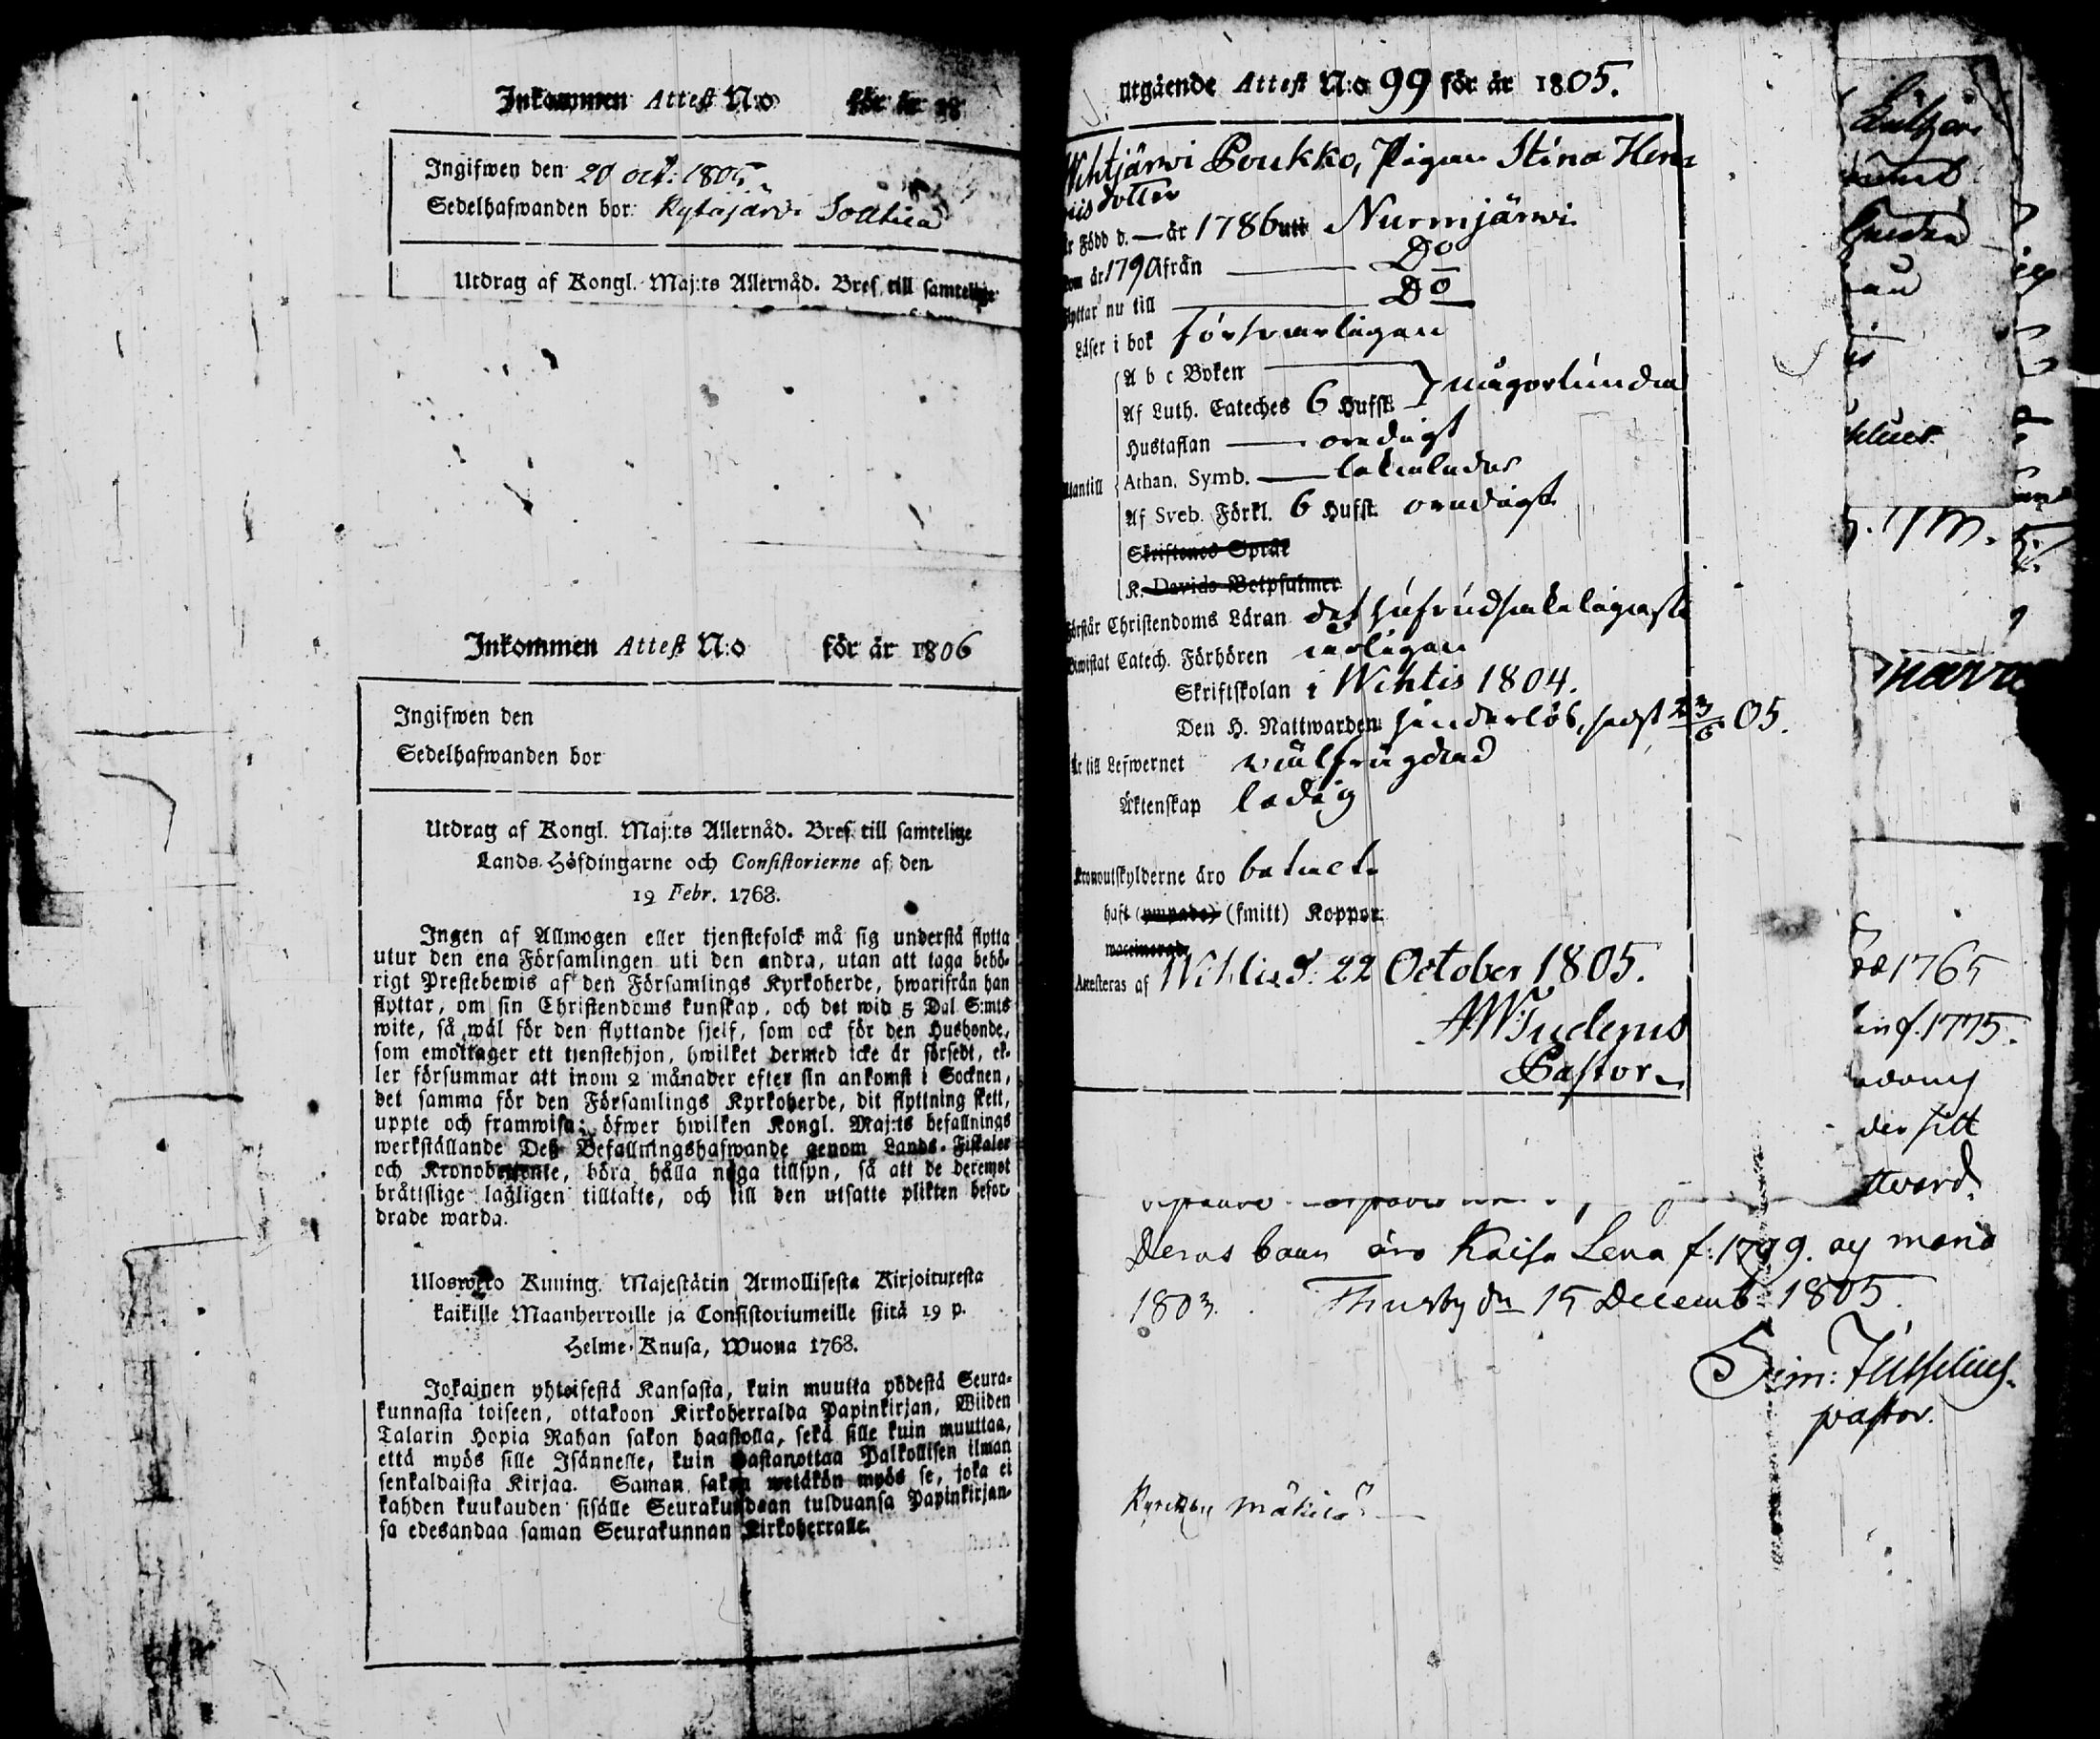 Inkommen Attest N:o för år 18
Ingifwen den 20 oct: 1805
Sedelhafwanden bor: Kytäjärvi
Utdrag af Kongl. Maj:ts Allernåd. Bref till samtelige
Inkommen Attest N:o för år 1806
Ingifwen den
Sedelhafwanden bor
Utdrag af Kongl. Maj:ts Allernåd. Bref till samtelige
Lands-Höfdingarne och Consistorierne af den
19 Febr. 1768.
Ingen af Allmogen eller tjenstefolck må sig understå flytta
utur den ena Församlingen uti den andra, utan att taga behö-
rigt Prestebewis af den Församlings Kyrkoherde, hwarifrån han
flyttar, om sin Christendoms kunskap, och det wid 5 Dal S:mts
wite, så wäl för den flyttande sjelf, som ock för den Husbonde,
som emottager ett tjenstehjon, hwilket dermed icke är försedt, el-
ler försummar att inom 2 månader efter sin ankomst i Socknen,
det samma för den Församlings Kyrkoherde, dit flyttning skett,
uppte och framwisa; öfwer hwilken Kongl. Maj:ts befallnings
werkställande Deß Befallningshafwande genom Lands-Fiskaler
och Kronobetjente, böra hålla noga tillsyn, så att de deremot
bråttslige lagligen tilltalte, och till den utsatte plikten befor-
drade warda.
Uloswето Kuning. Majestätin Armollisesta Kirjoituxesta
kaikille Maanherroille ja Consistoriumeille siitä 19 p.
Helme-Knusa, Wuona 1768.
Jokainen yhteisestä Kansasta, kuin muutta yhdestä Seura-
kunnasta toiseen, ottakoon Kirkoherralda Papinkirjan, Wiiden
Talarin Hopia Rahan sakon haastolla, sekä sille kuin muuttaa,
että myös sille Isännelle, kuin wastanottaa Palkollisen ilman
senkaldaista Kirjaa. Saman sakon wetäkön myös se, joka ei
kahden kuukauden sisälle Seurakundaan tulduansa Papinkirjan-
sa edesandaa saman Seurakunnan Kirkoherralle.
utgående Attest N:o 99 för år 1805.
Wihtjärwi Poukko, Pigan Stina Hen-
dotter
Född d. — år 1786 uti Nurmjärwi
om år 1790 från — Do
flyttar nu till — Do
Läser i bok försvarligen
A b c Boken
Af Luth. Cateches 6 Hufst. någorlunda
Hustaflan — owadigt
Utantill Athan. Symb. —
Af Sveb. Förkl. 6 Hufst. owadigt
Skriftenes Språk
K. Davids Botpsalmer
Förstår Christendoms Läran det hufvudsakeligaste
Biwistat Catech. Förhören årligen
Skriftskolan i Wihtis 1804.
Den H. Nattwarden hinderlös, sedst 23/6 05.
Är till Lefwernet wälfrägdad
Äktenskap ledig
Kronoutskylderne äro betalt
haft (ympade) (smitt) Koppor.
Attesteras af Wihtis d. 22 October 1805.
Pastor
Deras barn äro Kaisa Lena f: 1799.
1803. Thusby dn 15 Decemb 1805.
Sim:
pastor.
1765
f. 1775.